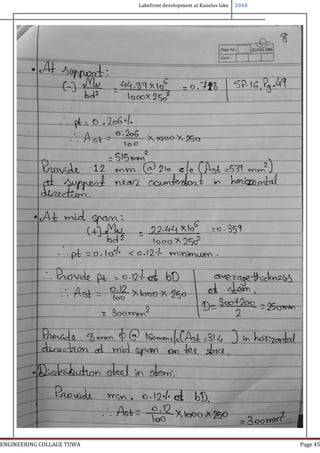 Lakefront development at Kanelav lake 2018
8
Page No.:
Date
• At support:
(-) Mu/bd² = 44.89×10⁶/1000×250² = 0.718 | SP-16, Pg-49
∴ pt = 0.206%
∴ Ast = 0.206/100 × 1000 × 250
= 515mm²
Provide 12 mm @ 210 c/c (Ast = 539 mm²)
at support near counterfort in horizontal
direction.
• At mid span:
(+) Mu/bd² = 22.44×10⁶/1000×250² = 0.359
∴ pt = 0.10% < 0.12% minimum.
∴ Provide pt = 0.12% of bD
average thickness
of stem
∴ Ast = 0.12/100 × 1000 × 250
D = 300+200/2 = 250mm
= 300mm²
Provide 8mm ϕ @ 160mm c/c (Ast = 314 ) in horizontal
direction at mid span on
• Distribution steel in stem:
Provide min. 0.12% of bD.
∴ Ast = 0.12/100 × 1000 × 250 = 300mm²
ENGINEERING COLLAGE TUWA Page 45